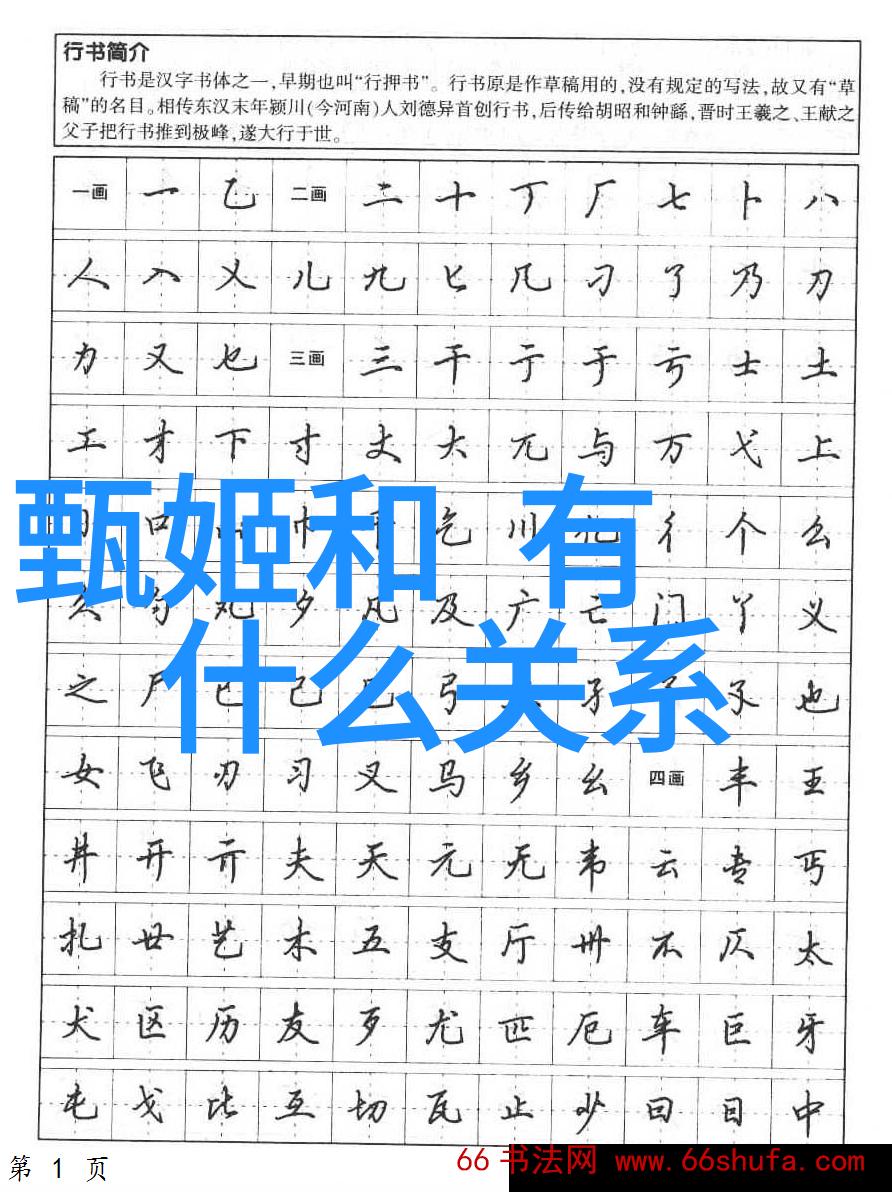 行书简介
行书是汉字书体之一,早期也叫“行押书”。行书原是作草稿用的,没有规定的写法,故又有“草
稿”的名目。相传东汉末年颍川(今河南)人刘德异首创行书,后传给胡昭和钟繇,晋时王羲之、王献之
父子把行书推到极峰,遂大行于世。
一画 一 乙 二画 二 十 丁 厂 七 卜 八
人 入 乂 儿 九 匕 几 刁 了 乃 刀
力 又 乜 三画 三 干 亍 于 亏 士 土
工 才 下 寸 丈 大 兀 与 万 弋 上
口 巾 乞 川 彳 个 么
甄姬和 有
久 勺 丸 夕 凡 及 广 亡 门 丫 义
什么关系
之 尸 已 己 巳 弓 孑 孓 也
女 飞 刃 习 叉 马 乡 幺 四画 丰 王
井 开 亓 夫 天 元 无 韦 云 专 丐
扎 廿 艺 木 五 支 厅 卅 不 仄 太
犬 区 历 友 歹 尤 匹 厄 车 巨 牙
屯 戈 比 互 切 瓦 止 少 曰 日 中
第 1 页
66书法网 www.66shufa.com